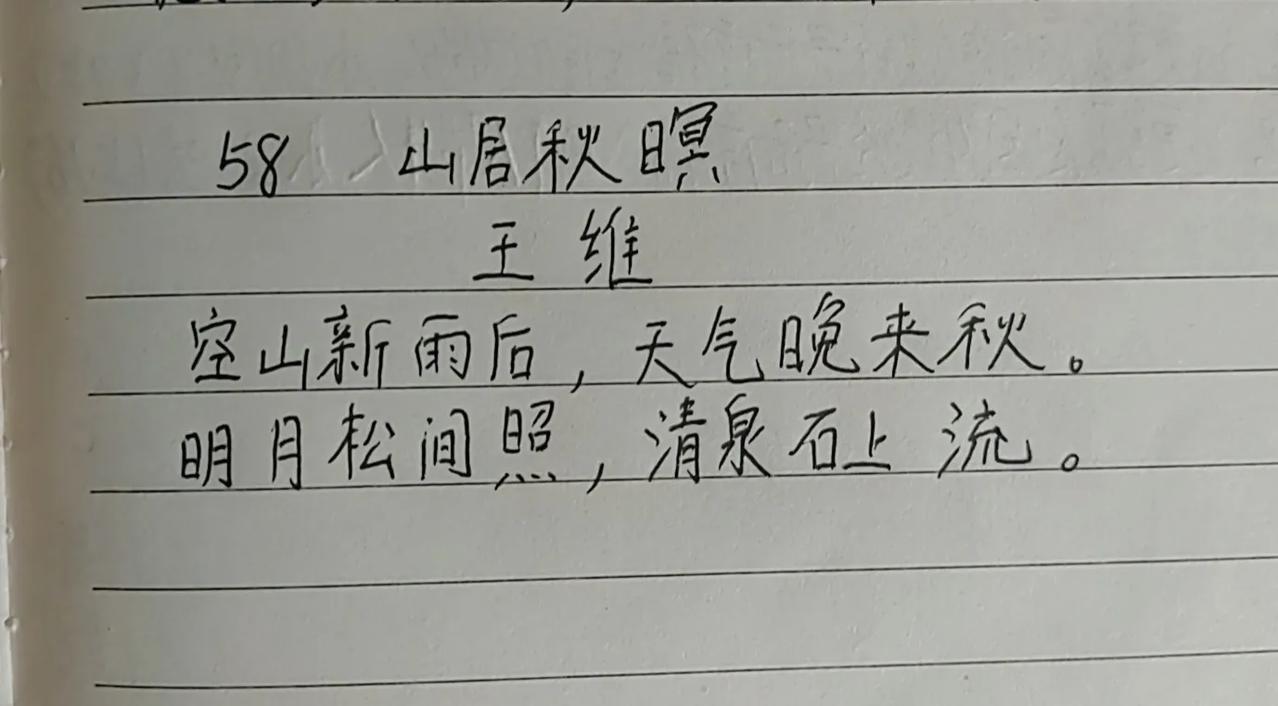 58 山居秋暝
王维
空山新雨后，天气晚来秋。
明月松间照，清泉石上流。